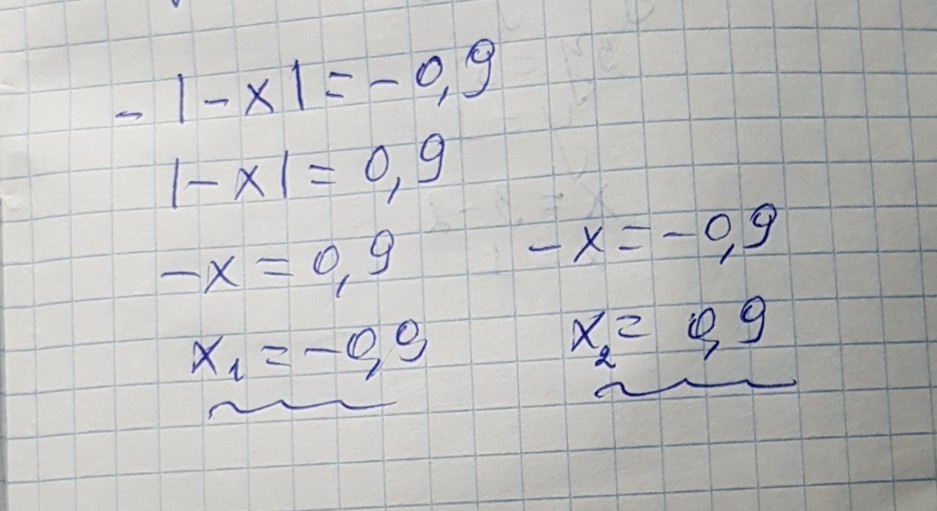 - |-x| = -0,9
|-x| = 0,9
-x = 0,9 -x = -0,9
x₁ = -0,9 x₂ = 0,9